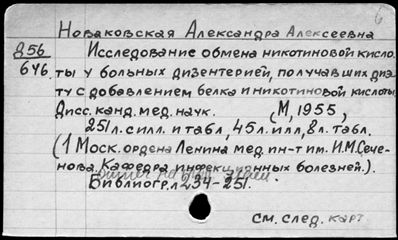 6
Новаковская Александра Алексеевна
856 Исследование обмена никотиновой кисло-
646. ты у больных дизентерией, получавших дие-
ту с добавлением белка и никотиновой кислоты.
Дисс. канд. мед. наук. (М, 1955)
251 л. с илл. и табл, 45 л. илл, 8 л. табл.
(1 Моск. ордена Ленина мед. ин-т им. И.М. Сече-
нова. Кафедра инфекционных болезней.).
Библиогр. л 234-251.
см. след. карт.